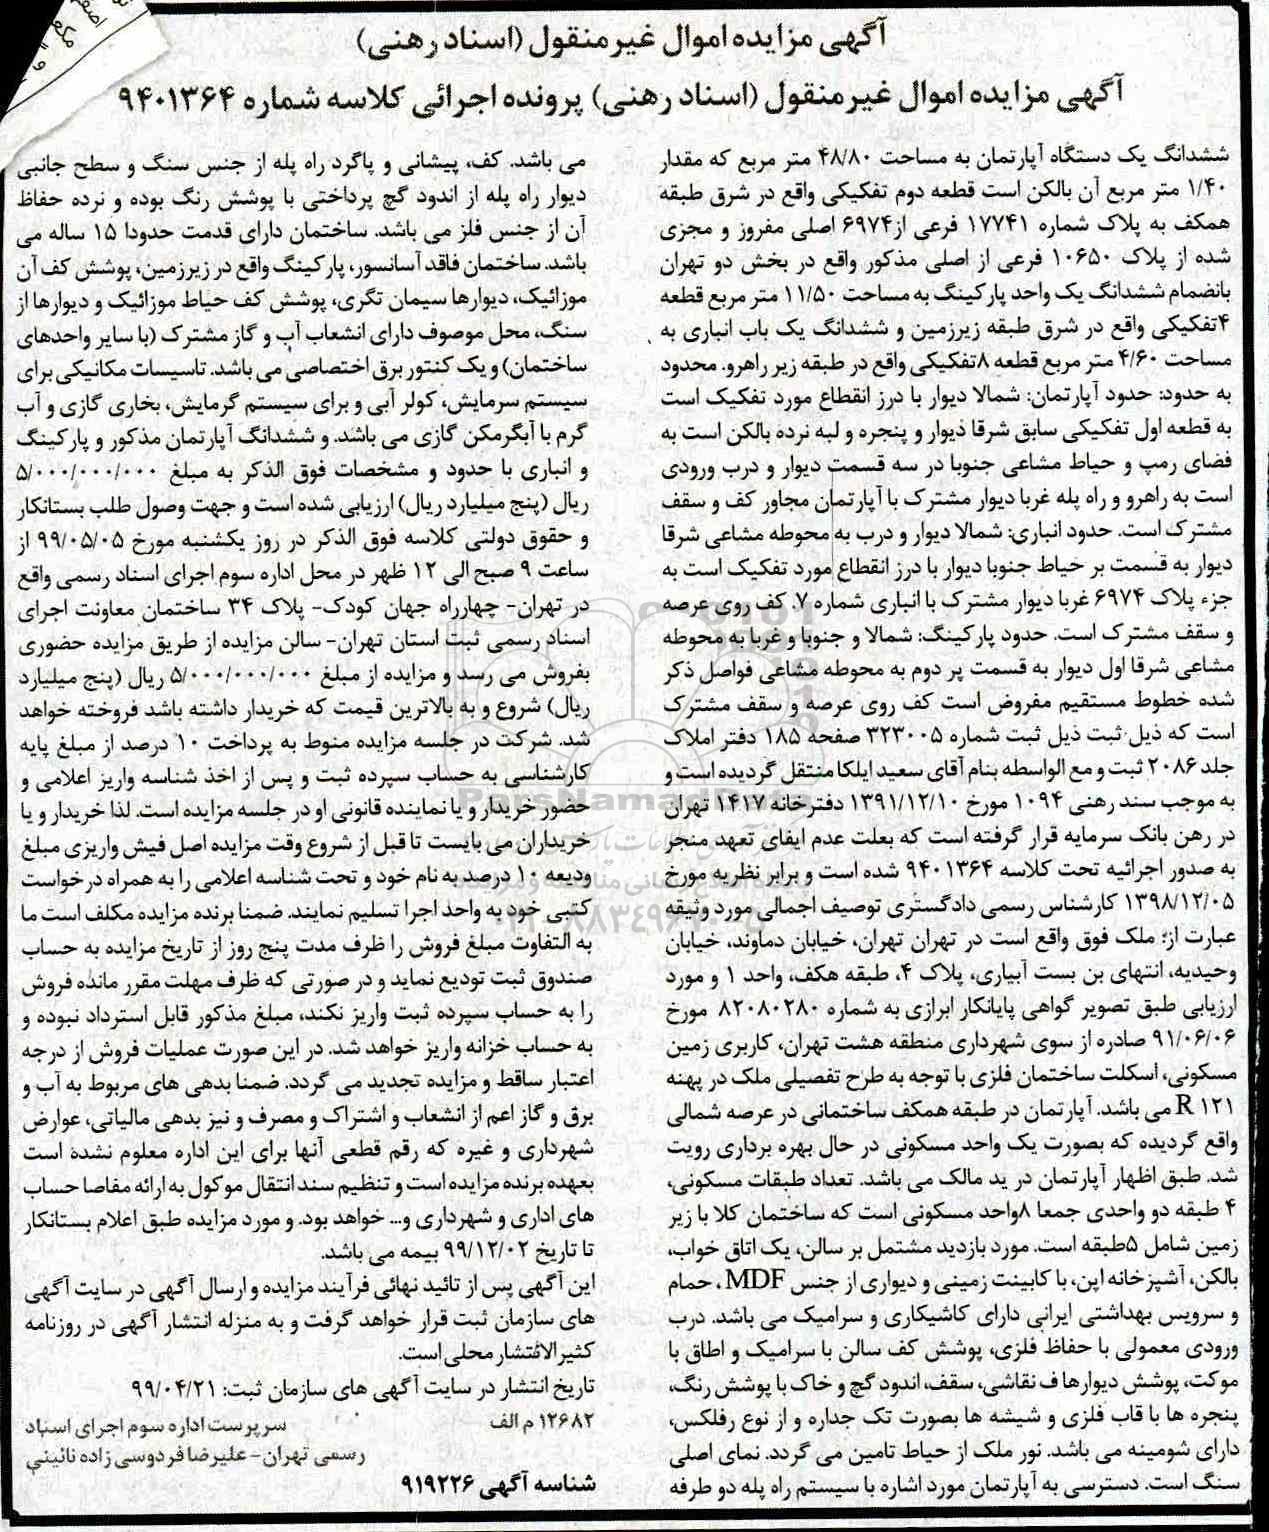 آگهی مزایده اموال غیرمنقول (اسناد رهنی)
آگهی مزایده اموال غیرمنقول (اسناد رهنی) پرونده اجرائی کلاسه شماره ۹۴۰۱۳۶۴
ششدانگ یک دستگاه آپارتمان به مساحت ۴۸/۸۰ متر مربع که مقدار
۱/۴۰ متر مربع آن بالکن است قطعه دوم تفکیکی واقع در شرق طبقه
همکف به پلاک شماره ۱۷۷۴۱ فرعی از۶۹۷۴ اصلی مفروز و مجزی
شده از پلاک ۱۰۶۵۰ فرعی از اصلی مذکور واقع در بخش دو تهران
بانضمام ششدانگ یک واحد پارکینگ به مساحت ۱۱/۵۰ متر مربع قطعه
۴تفکیکی واقع در شرق طبقه زیرزمین و ششدانگ یک باب انباری به
مساحت ۴/۶۰ متر مربع قطعه ۸تفکیکی واقع در طبقه زیر راهرو. محدود
به حدود: حدود آپارتمان: شمالا دیوار با درز انقطاع مورد تفکیک است
به قطعه اول تفکیکی سابق شرقا دیوار و پنجره و لبه نرده بالکن است به
فضای رمپ و حیاط مشاعی جنوبا در سه قسمت دیوار و درب ورودی
است به راهرو و راه پله غربا دیوار مشترک با آپارتمان مجاور کف و سقف
مشترک است. حدود انباری: شمالا دیوار و درب به محوطه مشاعی شرقا
دیوار به قسمت بر حیاط جنوبا دیوار با درز انقطاع مورد تفکیک است به
جزء پلاک ۶۹۷۴ غربا دیوار مشترک با انباری شماره ۷. کف روی عرصه
و سقف مشترک است. حدود پارکینگ: شمالا و جنوبا و غربا به محوطه
مشاعی شرقا اول دیوار به قسمت پر دوم به محوطه مشاعی فواصل ذکر
شده خطوط مستقیم مفروض است کف روی عرصه و سقف مشترک
است که ذیل ثبت ذیل ثبت شماره ۳۲۳۰۰۵ صفحه ۱۸۵ دفتر املاک
جلد ۲۰۸۶ ثبت و مع الواسطه بنام آقای سعید ایلکا منتقل گردیده است و
به موجب سند رهنی ۱۰۹۴ مورخ ۱۳۹۱/۱۲/۱۰ دفترخانه ۱۴۱۷ تهران
در رهن بانک سرمایه قرار گرفته است که بعلت عدم ایفای تعهد منجر
به صدور اجرائیه تحت کلاسه ۹۴۰۱۳۶۴ شده است و برابر نظریه مورخ
۱۳۹۸/۱۲/۰۵ کارشناس رسمی دادگستری توصیف اجمالی مورد وثیقه
عبارت از: ملک فوق واقع است در تهران تهران، خیابان دماوند، خیابان
وحیدیه، انتهای بن بست آبیاری، پلاک ۴، طبقه هکف، واحد ۱ و مورد
ارزیابی طبق تصویر گواهی پایانکار ابرازی به شماره ۸۲۰۸۰۲۸۰ مورخ
۹۱/۰۶/۰۶ صادره از سوی شهرداری منطقه هشت تهران، کاربری زمین
مسکونی، اسکلت ساختمان فلزی با توجه به طرح تفصیلی ملک در پهنه
R ۱۲۱ می باشد. آپارتمان در طبقه همکف ساختمانی در عرصه شمالی
واقع گردیده که بصورت یک واحد مسکونی در حال بهره برداری رویت
شد. طبق اظهار آپارتمان در ید مالک می باشد. تعداد طبقات مسکونی،
۴ طبقه دو واحدی جمعا ۸واحد مسکونی است که ساختمان کلا با زیر
زمین شامل ۵طبقه است. مورد بازدید مشتمل بر سالن، یک اتاق خواب،
بالکن، آشپزخانه اپن، با کابینت زمینی و دیواری از جنس MDF، حمام
و سرویس بهداشتی ایرانی دارای کاشیکاری و سرامیک می باشد. درب
ورودی معمولی با حفاظ فلزی، پوشش کف سالن با سرامیک و اطاق با
موکت، پوشش دیوارها ف نقاشی، سقف، اندود گچ و خاک با پوشش رنگ،
پنجره ها با قاب فلزی و شیشه ها بصورت تک جداره و از نوع رفلکس،
دارای شومینه می باشد. نور ملک از حیاط تامین می گردد. نمای اصلی
سنگ است. دسترسی به آپارتمان مورد اشاره با سیستم راه پله دو طرفه
می باشد. کف، پیشانی و پاگرد راه پله از جنس سنگ و سطح جانبی
دیوار راه پله از اندود گچ پرداختی با پوشش رنگ بوده و نرده حفاظ
آن از جنس فلز می باشد. ساختمان دارای قدمت حدودا ۱۵ ساله می
باشد. ساختمان فاقد آسانسور، پارکینگ واقع در زیرزمین، پوشش کف آن
موزائیک، دیوارها سیمان تگری، پوشش کف حیاط موزائیک و دیوارها از
سنگ، محل موصوف دارای انشعاب آب و گاز مشترک (با سایر واحدهای
ساختمان) و یک کنتور برق اختصاصی می باشد. تاسیسات مکانیکی برای
سیستم سرمایش، کولر آبی و برای سیستم گرمایش، بخاری گازی و آب
گرم با آبگرمکن گازی می باشد. و ششدانگ آپارتمان مذکور و پارکینگ
و انباری با حدود و مشخصات فوق الذکر به مبلغ ۵/۰۰۰/۰۰۰/۰۰۰
ریال (پنج میلیارد ریال) ارزیابی شده است و جهت وصول طلب بستانکار
و حقوق دولتی کلاسه فوق الذکر در روز یکشنبه مورخ ۹۹/۰۵/۰۵ از
ساعت ۹ صبح الی ۱۲ ظهر در محل اداره سوم اجرای اسناد رسمی واقع
در تهران- چهارراه جهان کودک- پلاک ۳۴ ساختمان معاونت اجرای
اسناد رسمی ثبت استان تهران- سالن مزایده از طریق مزایده حضوری
بفروش می رسد و مزایده از مبلغ ۵/۰۰۰/۰۰۰/۰۰۰ ریال (پنج میلیارد
ریال) شروع و به بالاترین قیمت که خریدار داشته باشد فروخته خواهد
شد. شرکت در جلسه مزایده منوط به پرداخت ۱۰ درصد از مبلغ پایه
کارشناسی به حساب سپرده ثبت و پس از اخذ شناسه واریز اعلامی و
حضور خریدار و یا نماینده قانونی او در جلسه مزایده است. لذا خریدار و یا
خریداران می بایست تا قبل از شروع وقت مزایده اصل فیش واریزی مبلغ
ودیعه ۱۰ درصد به نام خود و تحت شناسه اعلامی را به همراه درخواست
کتبی خود به واحد اجرا تسلیم نمایند. ضمنا برنده مزایده مکلف است ما
به التفاوت مبلغ فروش را ظرف مدت پنج روز از تاریخ مزایده به حساب
صندوق ثبت تودیع نماید و در صورتی که ظرف مهلت مقرر مانده فروش
را به حساب سپرده ثبت واریز نکند، مبلغ مذکور قابل استرداد نبوده و
به حساب خزانه واریز خواهد شد. در این صورت عملیات فروش از درجه
اعتبار ساقط و مزایده تجدید می گردد. ضمنا بدهی های مربوط به آب و
برق و گاز اعم از انشعاب و اشتراک و مصرف و نیز بدهی مالیاتی، عوارض
شهرداری و غیره که رقم قطعی آنها برای این اداره معلوم نشده است
بعهده برنده مزایده است و تنظیم سند انتقال موکول به ارائه مفاصا حساب
های اداری و شهرداری و... خواهد بود. و مورد مزایده طبق اعلام بستانکار
تا تاریخ ۹۹/۱۲/۰۲ بیمه می باشد.
این آگهی پس از تائید نهائی فرآیند مزایده و ارسال آگهی در سایت آگهی
های سازمان ثبت قرار خواهد گرفت و به منزله انتشار آگهی در روزنامه
کثیرالانتشار محلی است.
تاریخ انتشار در سایت آگهی های سازمان ثبت: ۹۹/۰۴/۲۱
۱۲۶۸۲ م الف
سرپرست اداره سوم اجرای اسناد
رسمی تهران- علیرضا فردوسی زاده نائینی
شناسه آگهی ۹۱۹۲۲۶
ParsNamadData